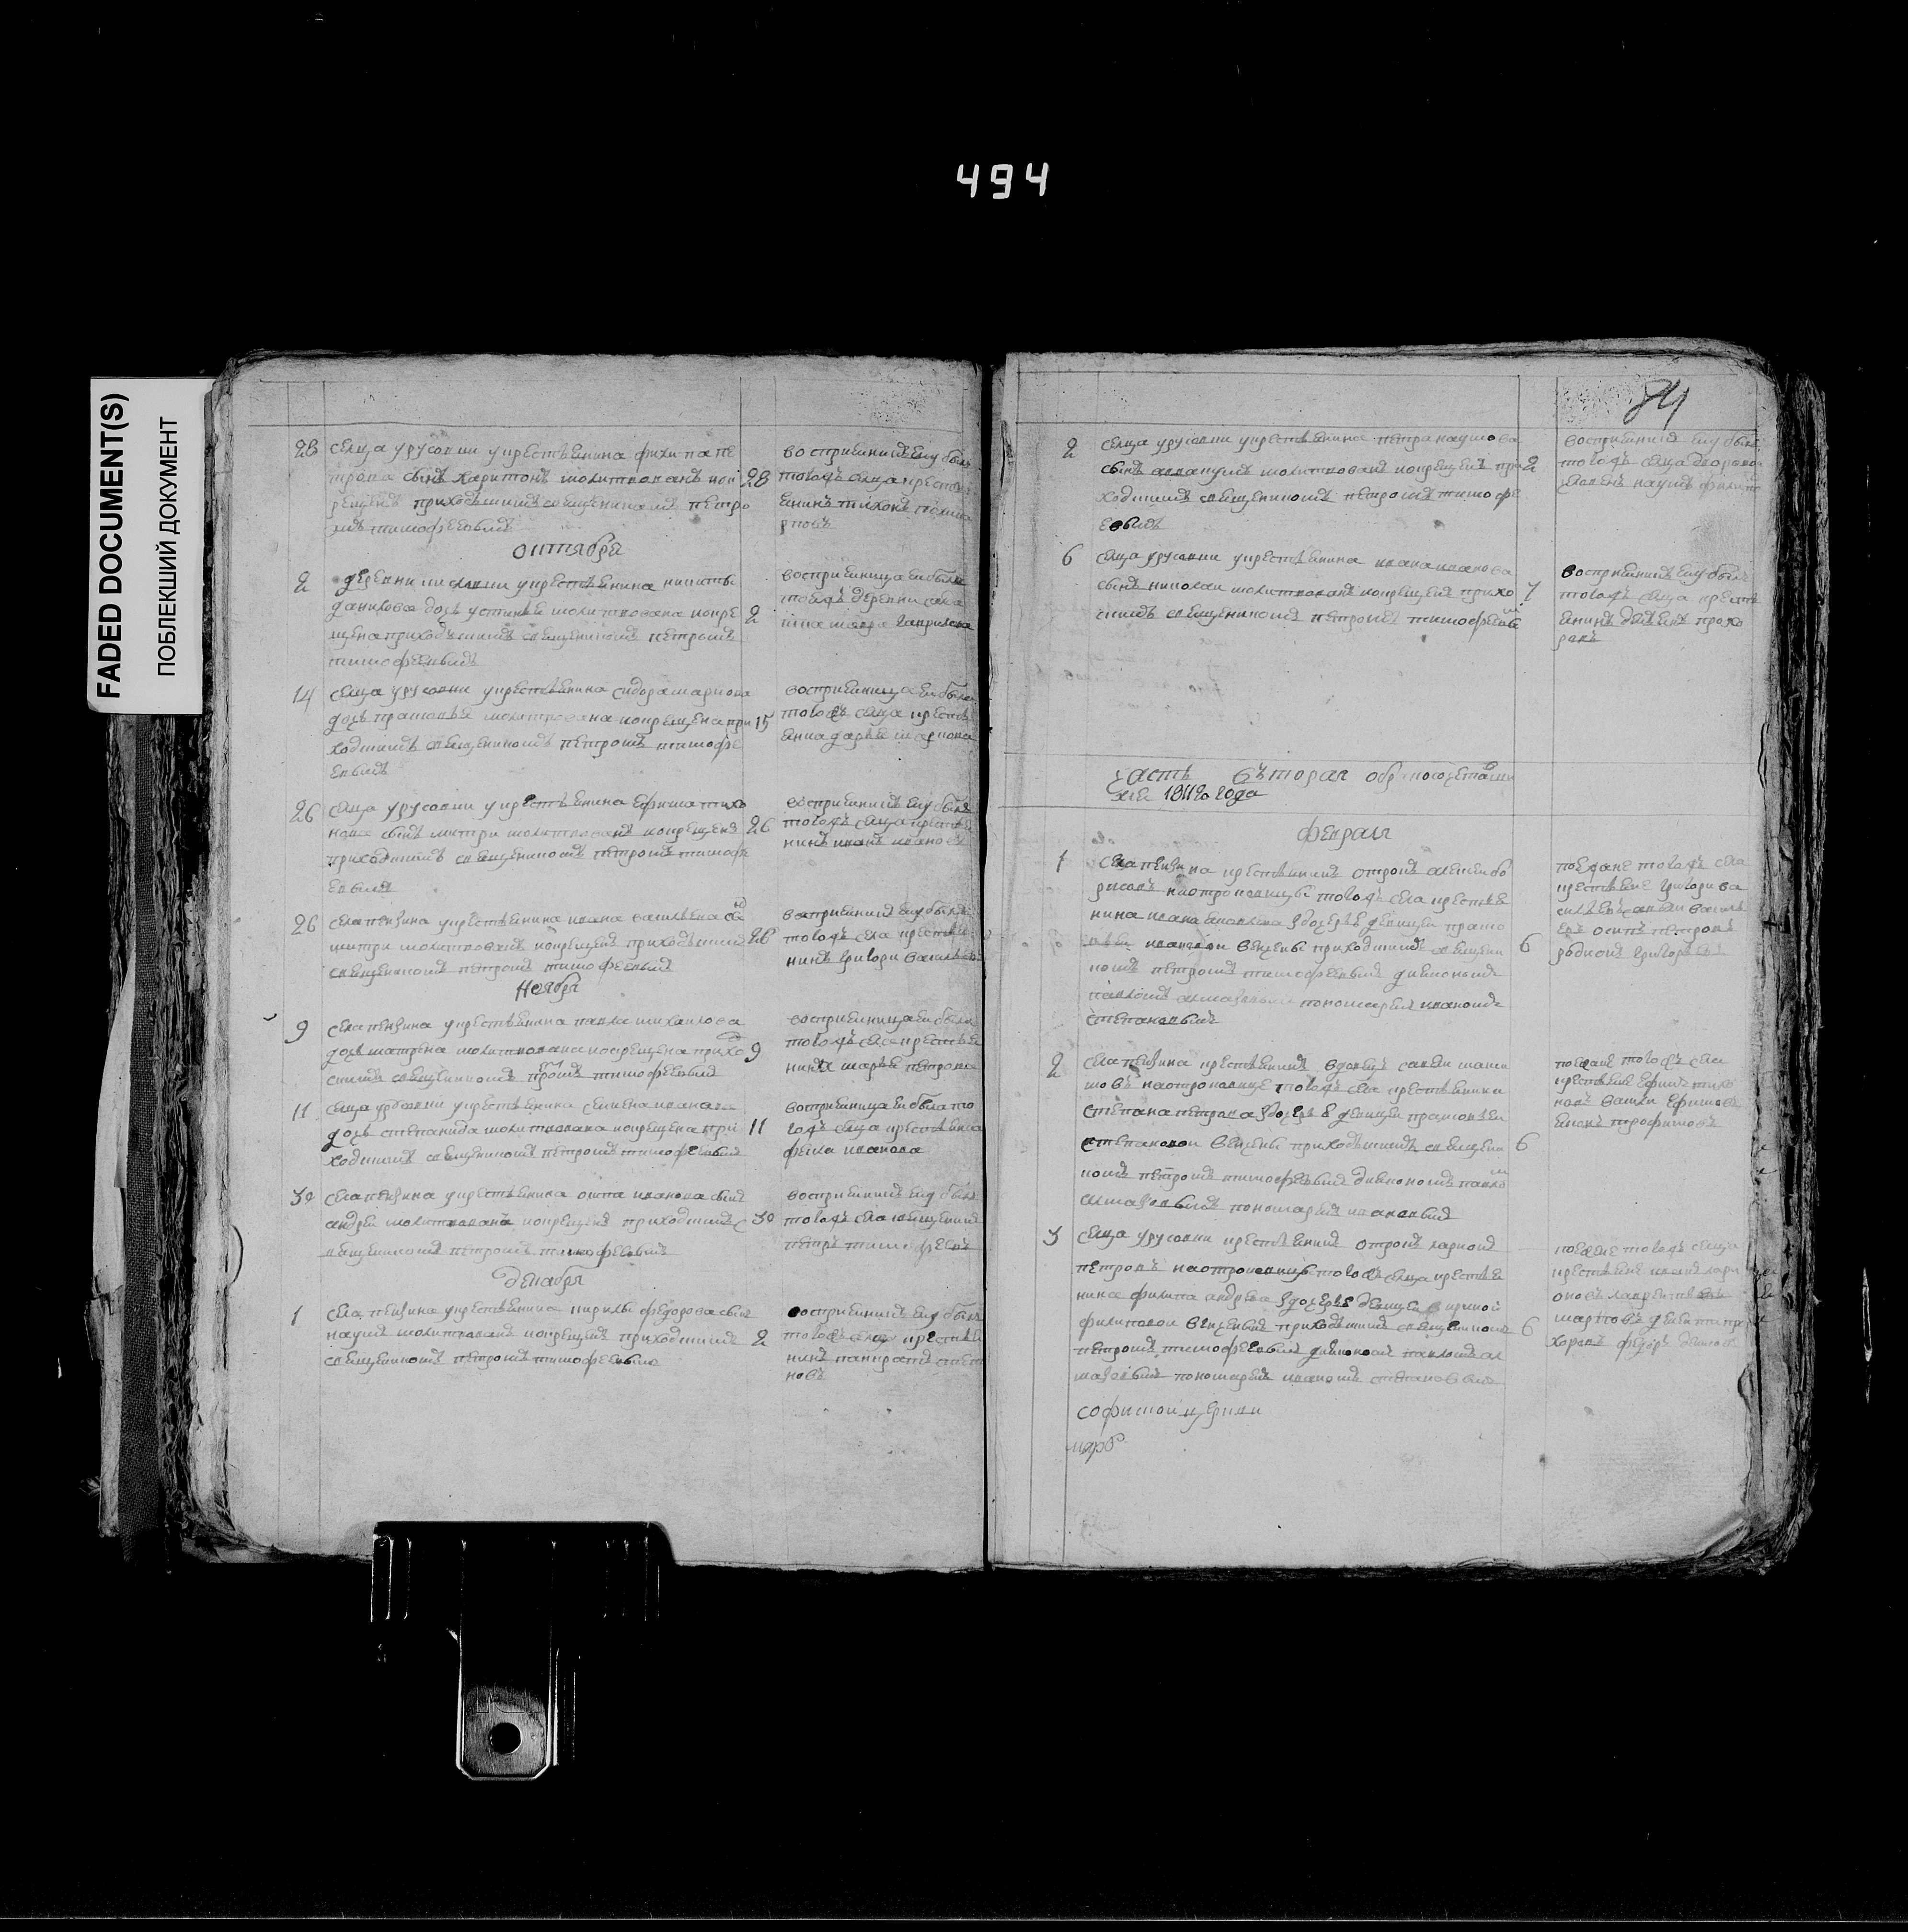 494
FADED DOCUMENT(S)
ПОБЛЕКШИЙ ДОКУМЕНТ
28 селца урусовки укрестьянина филипа пе
трова сынъ харитонъ молитвованъ икр
рещенъ приходскимъ священникомъ петро
мъ тимофеевымъ
28
восприемникъ ему былъ
тогожъ селца крестья
янинъ тихонъ
октября
2 деревни укрестьянина никиты
данилова дочь устинья молитвована икре
щена приходскимъ священникомъ петромъ
тимофеевымъ
2
восприемница ей была
тоежъ деревни
марья гаврилова
14 селца урусовки укрестьянина сидора маркова
дочь прасковья молитвована икрещена при
ходскимъ священникомъ петромъ тимофе
евымъ
15
восприемница ей была
тогожъ селца крестья
янка дарья маркова
26 селца урусовки укрестьянина ефима тихо
нова сынъ митри молитвованъ икрещенъ
приходскимъ священникомъ петромъ тимофе
евымъ
26
восприемникъ ему былъ
тогожъ селца крестья
нинъ иванъ ивановъ
26 села пензина укрестьянина ивана васильева сы
митри молитвованъ икрещенъ приходскимъ
священникомъ петромъ тимофеевымъ
28
восприемникъ ему былъ
тогожъ села крестья
нинъ григори васильевъ
Ноября
9 села пензина укрестьянина павла михаилова
дочь матрена молитвована икрещена прихо
скимъ священникомъ петромъ тимофеевымъ
9
восприемница ей была
тогожъ села крестья
нинка марья петрова
11 селца урусовки укрестьянина семиона иванова
дочь степанида молитвована икрещена при
ходскимъ священникомъ петромъ тимофеевымъ
11
восприемница ей была то
гожъ селца крестьянка
фекла иванова
30 села пензина укрестьянина осипа иванова сынъ
андрей молитвованъ икрещенъ приходскимъ с
вященникомъ петромъ тимофеевымъ
30
восприемникъ ему былъ
тогожъ села священникъ
петръ тимофеевъ
декабря
1 села пензина укрестьянина кирилы федорова сынъ
наумъ молитвованъ икрещенъ приходскимъ
священникомъ петромъ тимофеевымъ
2
восприемникъ ему былъ
тогожъ села крестья
нинъ панкратъ степа
новъ
84
2 селца урусовки укрестьянина петра наумова
сынъ молитвованъ икрещенъ при
ходскимъ священникомъ петромъ тимофе
евымъ
2
восприемникъ ему былъ
тогожъ селца дворовой
человекъ наумъ филипо
6 селца урусовки укрестьянина ивана иванова
сынъ николаи молитвованъ икрещенъ прихо
скимъ священникомъ петромъ тимофеевы
7
восприемникъ ему былъ
тогожъ селца крестья
янинъ прохо
ровъ
часть вторая обракосочетавши
хся 1811го года
феврал
1 села пензина крестьянинъ отрокъ алексей бо
рисовъ поотроковицы тогожъ села крестья
нина ивана яковлева здочерью девицей праско
вьей ивановой венчены приходскимъ священни
комъ петромъ тимофеевымъ дияконымъ
павломъ алмазовымъ пономаремъ иваномъ
степановымъ
6
поезжане тогожъ села
крестьяне григори ва
сильевъ савели василь
евъ осипъ петровъ
родионъ григорьевъ
2 села пензина крестьянинъ вдовецъ савели макси
мовъ наотроковице тогожъ села крестьянина
степана петрова здочерью девицей прасковьей
степановой венчены приходскимъ священни
комъ петромъ тимофеевымъ диякономъ павло
алмазовымъ пономаремъ ивановымъ
6
поезжане тогожъ села
крестьяне ефимъ тихо
новъ василей ефимовъ
трофимовъ
3 селца урусовки крестьянинъ отрокъ ларионъ
петровъ наотроковицы тогожъ селца крестья
нина филипа андрева здочерью девицей ириной
филиповой венчены приходскимъ священникомъ
петромъ тимофеевымъ дияконымъ павломъ ал
мазовымъ пономаремъ иваномъ степановымъ
6
поезжане тогожъ селца
крестьяне иванъ лари
оновъ лаврентей
марковъ дементи про
хоровъ федоръ